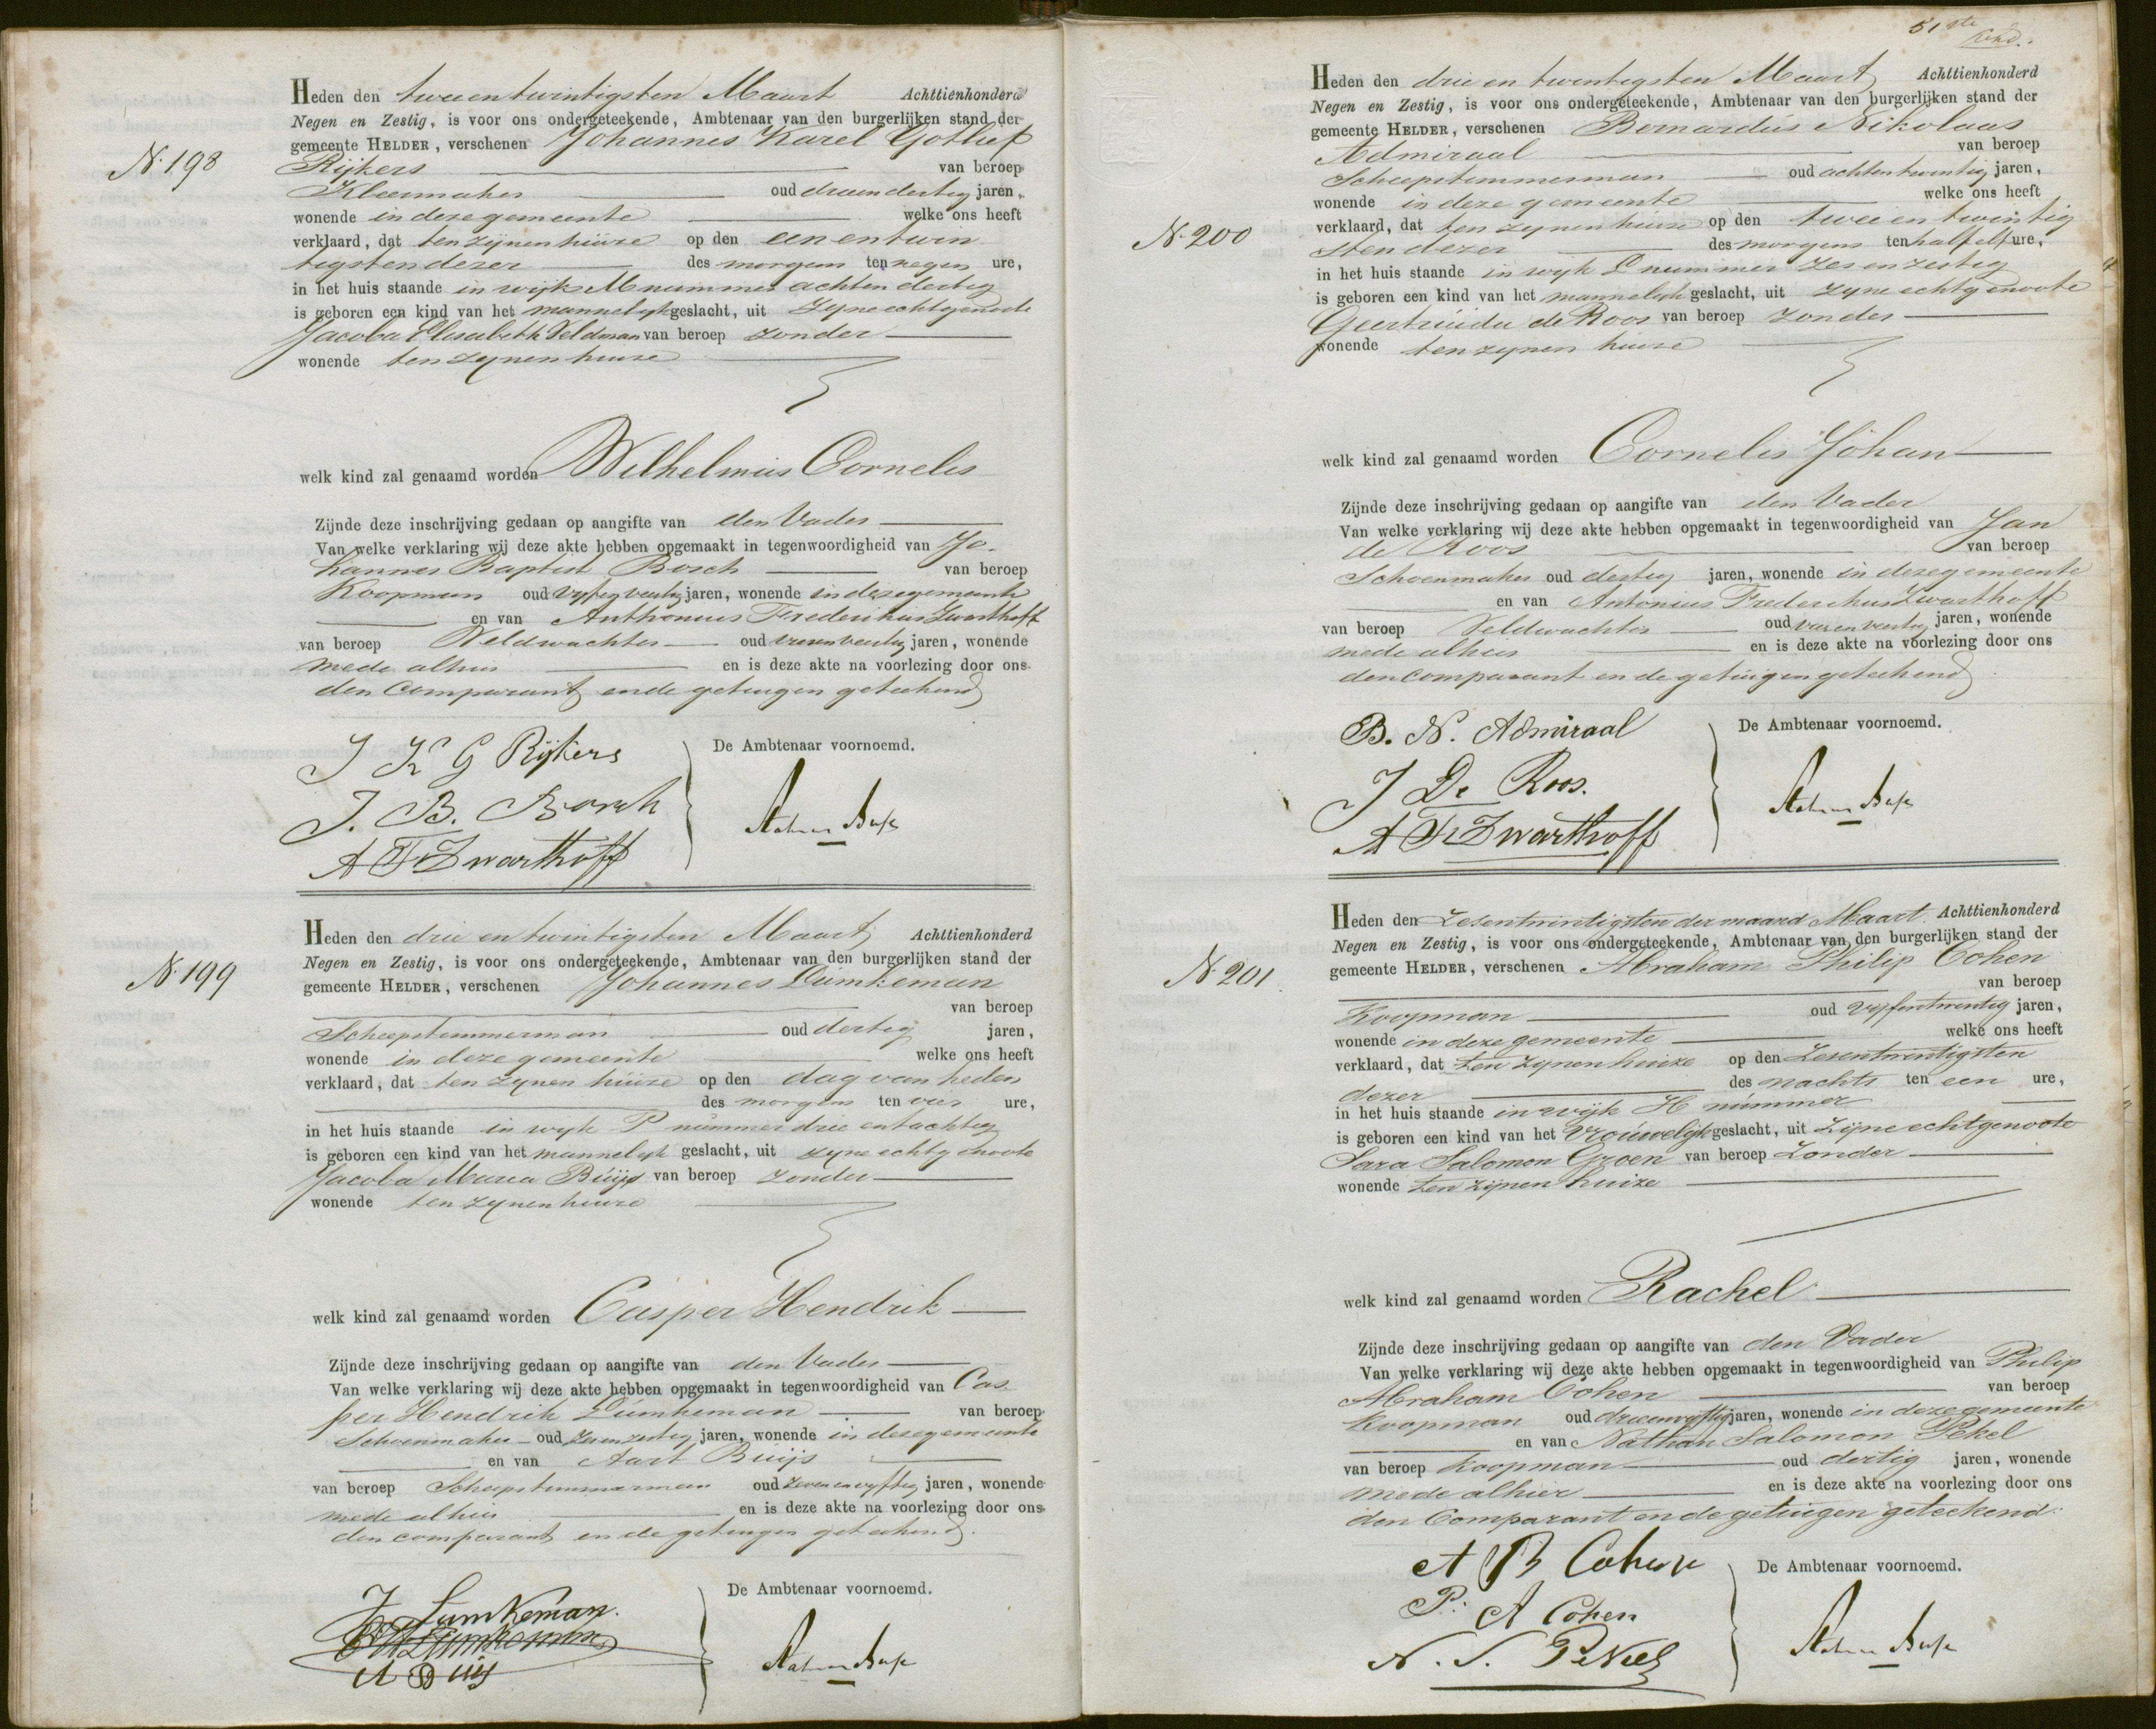 Heden den twee en twintigsten Maart Achttienhonderd
Negen en Zestig, is voor ons ondergeteekende, Ambtenaar van den burgerlijken stand der
gemeente HELDER, verschenen Johannes Karel Gotlief
N. 198
Rijkers van beroep
Kleermaker oud drieendertig jaren,
wonende in deze gemeente welke ons heeft
verklaard, dat ten zijnen huize op den een en twin
tigsten dezer des morgens ten negen ure,
in het huis staande in wijk M nummer achtendertig
is geboren een kind van het mannelijk geslacht, uit zyne echtgenoote
Jacoba Elisabeth Veldman van beroep zonder
wonende ten zynen huize
welk kind zal genaamd worden Wilhelmus Cornelis
Zijnde deze inschrijving gedaan op aangifte van den Vader
Van welke verklaring wij deze akte hebben opgemaakt in tegenwoordigheid van Jo-
hannes Baptist Bosch van beroep
Koopman oud vyfenveertig jaren, wonende in deze gemeente
en van Anthonius Frederikus Zwarthoff
van beroep Veldwachter oud vierenveertig jaren, wonende
mede alhier en is deze akte na voorlezing door ons
den Comparant en de getuigen geteekend
J K G Rijkers
J. B. Bosch
A F Zwarthoff
De Ambtenaar voornoemd.
Heden den drie en twintigsten Maart Achttienhonderd
Negen en Zestig, is voor ons ondergeteekende, Ambtenaar van den burgerlijken stand der
gemeente HELDER, verschenen Johannes Lumkeman
N. 199
van beroep
Scheepstimmerman oud dertig jaren,
wonende in deze gemeente welke ons heeft
verklaard, dat ten zynen huize op den dag van heden
des morgens ten vier ure,
in het huis staande in wyk P nummer drie entachtig
is geboren een kind van het mannelyk geslacht, uit zyne echtgenoote
Jacoba Maria Buijs van beroep zonder
wonende ten zynen huize
welk kind zal genaamd worden Casper Hendrik
Zijnde deze inschrijving gedaan op aangifte van den Vader
Van welke verklaring wij deze akte hebben opgemaakt in tegenwoordigheid van Cas
per Hendrik Lumkeman van beroep
Schoenmaker oud zesenzestig jaren, wonende in deze gemeente
en van Aart Buijs
van beroep Scheepstimmerman oud zevenenvyftig jaren, wonende
mede alhier en is deze akte na voorlezing door ons
den comparant en de getuigen geteekend.
J Lumkeman.
C H Lumkeman
A Buijs
De Ambtenaar voornoemd.
51ste
Heden den drie en twintigsten Maart Achttienhonderd
Negen en Zestig, is voor ons ondergeteekende, Ambtenaar van den burgerlijken stand der
gemeente HELDER, verschenen Bernardus Nikolaas
Admiraal van beroep
Scheepstimmerman oud achtentwintig jaren,
wonende in deze gemeente welke ons heeft
N. 200
verklaard, dat ten zynen huize op den twee en twintig
sten dezer des morgens ten half elf ure,
in het huis staande in wyk L nummer zesenzestig
is geboren een kind van het mannelyk geslacht, uit zyne echtgenoote
Geertruida de Roos van beroep zonder
wonende ten zynen huize
welk kind zal genaamd worden Cornelis Johan
Zijnde deze inschrijving gedaan op aangifte van den Vader
Van welke verklaring wij deze akte hebben opgemaakt in tegenwoordigheid van Jan
de Roos van beroep
Schoenmaker oud dertig jaren, wonende in deze gemeente
en van Antonius Frederikus Zwarthoff
van beroep Veldwachter oud vierenveertig jaren, wonende
mede alhier en is deze akte na voorlezing door ons
den comparant en de getuigen geteekend
B. N. Admiraal
J De Roos.
A F Zwarthoff
De Ambtenaar voornoemd.
Heden den Zesentwintigsten der maand Maart Achttienhonderd
Negen en Zestig, is voor ons ondergeteekende, Ambtenaar van den burgerlijken stand der
gemeente HELDER, verschenen Abraham Philip Cohen
N. 201
van beroep
Koopman oud vyfentwintig jaren,
wonende in deze gemeente welke ons heeft
verklaard, dat ten zynen huize op den Zesentwintigsten
dezer des nachts ten een ure,
in het huis staande in wijk H nummer
is geboren een kind van het vrouwelijk geslacht, uit zijne echtgenoote
Sara Salomon Groen van beroep Zonder
wonende ten zijnen huize
welk kind zal genaamd worden Rachel
Zijnde deze inschrijving gedaan op aangifte van den Vader
Van welke verklaring wij deze akte hebben opgemaakt in tegenwoordigheid van Philip
Abraham Cohen van beroep
Koopman oud drieenvyftig jaren, wonende in deze gemeente
en van Nathan Salomon Pekel
van beroep Koopman oud dertig jaren, wonende
mede alhier en is deze akte na voorlezing door ons
den Comparant en de getuigen geteekend.
A P Cohen
P. A Cohen
N. S. Pekel
De Ambtenaar voornoemd.